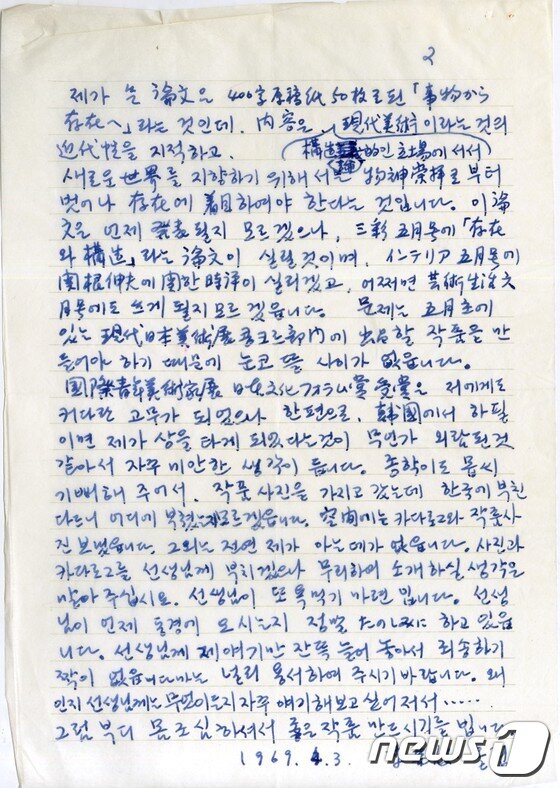 2
제가 쓴 論文은 400字原稿紙 50枚로된 「事物から
存在へ」라는 것인데. 内容은 現代美術이라는 것의
近代性을 지적하고. 構造 的인 立場에 서서
새로운 世界를 지향하기 위해서는 物神崇拝로부터
벗어나 存在에 着目하여야 한다는 것입니다. 이 論
文은 언제 発表될지 모르겠으나, 三彩 五月号에 「存在
와 構造」라는 論文이 실릴것이며, インテリア 五月号에
関根伸夫에 関한 時評이 실리겠고, 어쩌면 芸術生活 六
月号에도 쓰게 될지 모르겠읍니다. 문제는 五月초에
있는 現代日本美術展 콩코르部门에 出品할 作품을 만
들어야 하기 때문에 눈코 뜰 사이가 없읍니다.
国際青年美術家展 日本文化フォラム賞 受賞은 저에게도
커다란 고무가 되었으나 한편으로, 韓国에서 하필
이면 제가 상을 타게 되었다는것이 무언가 외람된것
같아서 자꾸 미안한 생각이 듭니다. 종학이도 몹씨
기뻐해 주어서, 작품사진을 가지고 갔는데 한국에 부친
다드니 어디에 부쳤는지모르겠읍니다. 空間에는 카다로그와 작품사
진 보냈읍니다. 그외는 전연 제가 아는데가 없읍니다. 사진과
카다로그를 선생님께 부치겠으나 무리하여 소개하실 생각은
말아 주십시요. 선생님이 또 욕먹기 마련입니다. 선생
님이 언제 東京에 오시는지 정말 たのしみに 하고 있읍
니다. 선생님께 제 얘기만 잔뜩 늘어 놓아서 죄송하기
짝이 없읍니다마는 널리 용서하여 주시기 바랍니다. 왜
인지 선생님께는 무엇이든지 자꾸 얘기해보고 싶어져서……
그럼 부디 몸조심하셔서 좋은 작품 만드시기를 빕니다
1969. 4. 3.
news1